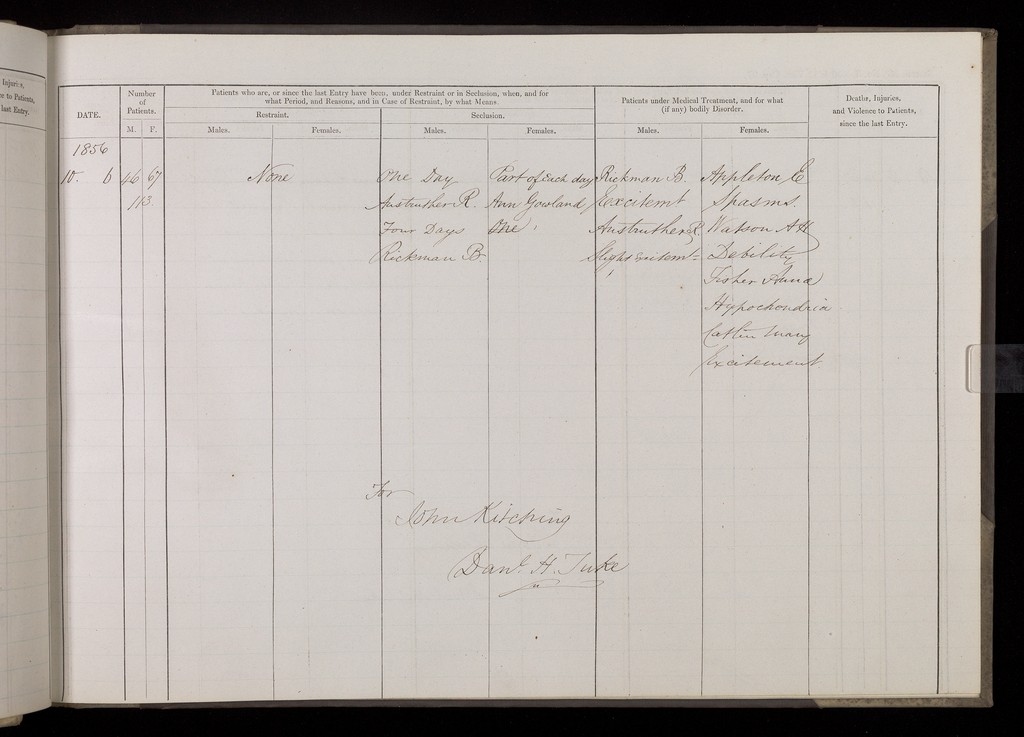 Injuries,
ce to Patients,
last Entry.
DATE.
Number
of
Patients.
M. F.
Patients who are, or since the last Entry have been, under Restraint or in Seclusion, when, and for
what Period, and Reasons, and in Case of Restraint, by what Means.
Restraint.
Males. Females.
Seclusion.
Males. Females.
Patients under Medical Treatment, and for what
(if any) bodily Disorder.
Males. Females.
Deaths, Injuries,
and Violence to Patients,
since the last Entry.
1856
10. 6 46 67 None One Day Part of Each day Rickman B. Appleton E
113 Anstruther R. Ann Gowland Excitemt Spasms.
Four Days One Anstruther R. Watson A H
Rickman B. Slight Excitemt Debility
Fisher Anna
Hypochondria
Catlin Mary
Excitement.
For
John Kitching
Danl. H. Tuke